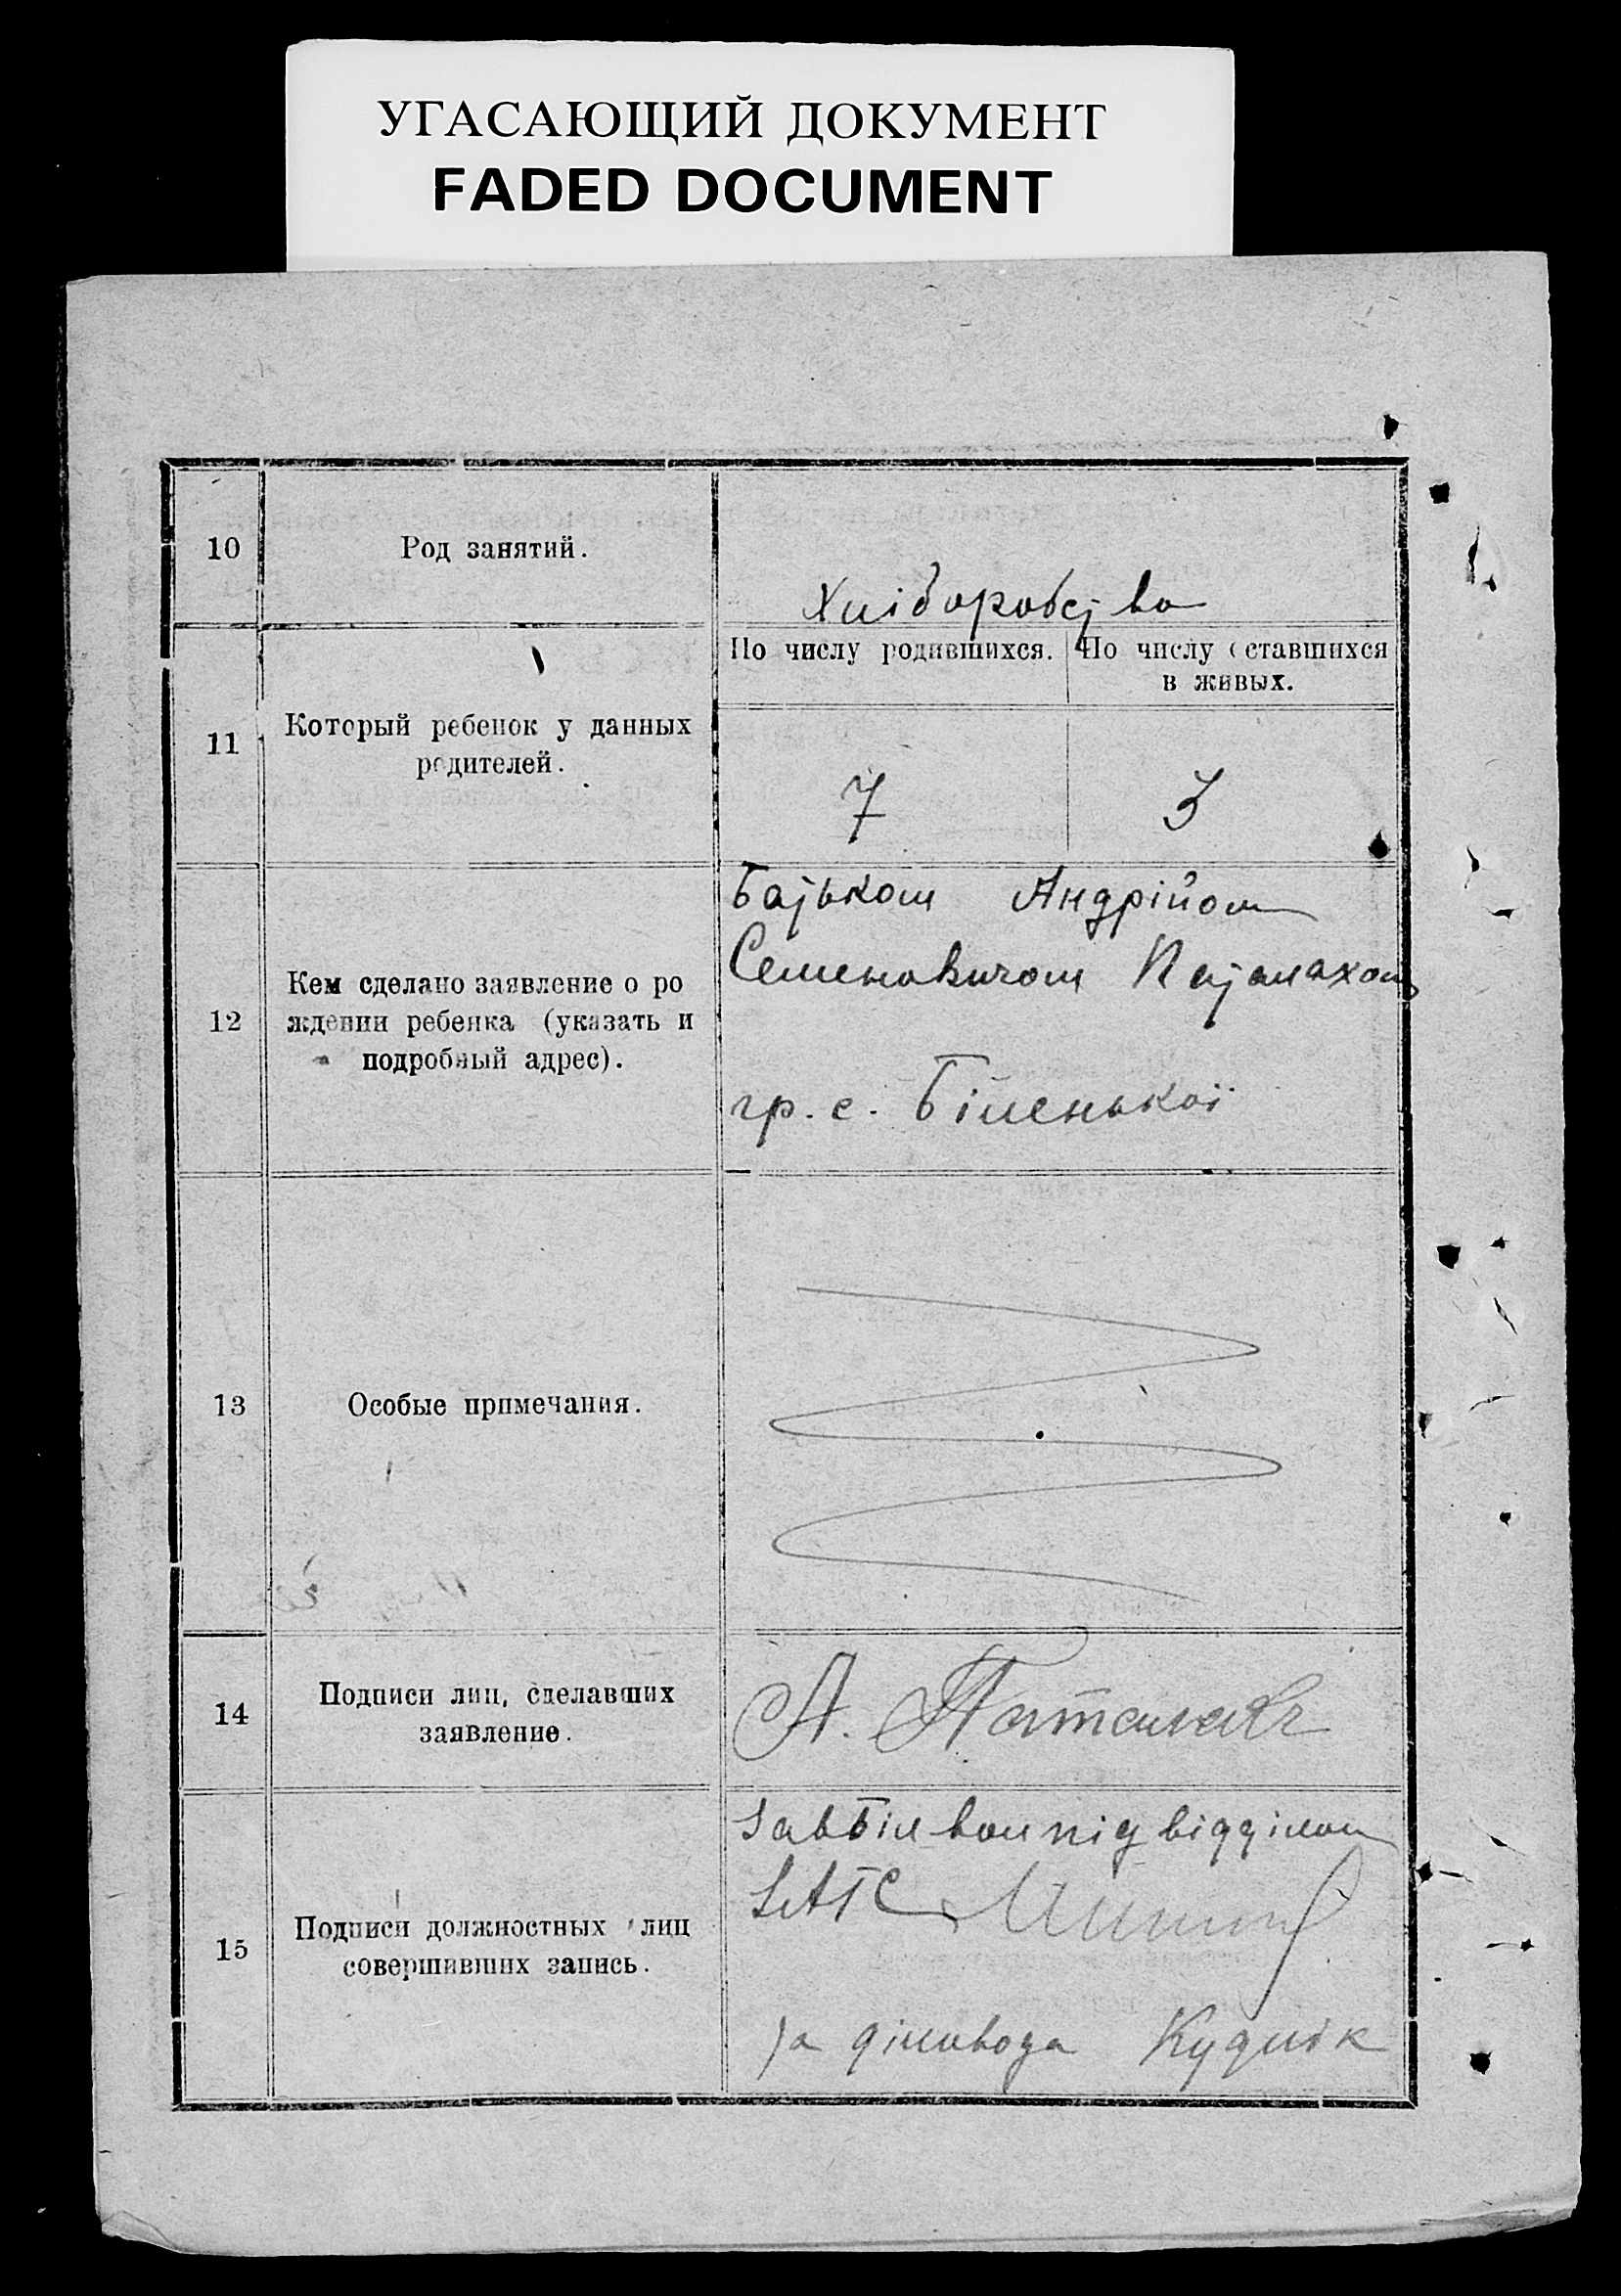 УГАСАЮЩИЙ ДОКУМЕНТ
FADED DOCUMENT
10
Род занятий.
Хліборобство
11
Который ребенок у данных
родителей.
По числу родившихся.
По числу оставшихся
в живых.
7
3
12
Кем сделано заявление о ро
ждении ребенка (указать и
подробный адрес).
Батьком Андрійом
Семеновичом Паталахом
гр. с. Біленької
13
Особые примечания.
14
Подписи лиц, сделавших
заявление.
А. Паталах
15
Подписи должностных лиц
совершивших запись.
Завбілвол підвідділом
ЗАГС
за діловода Кудлік